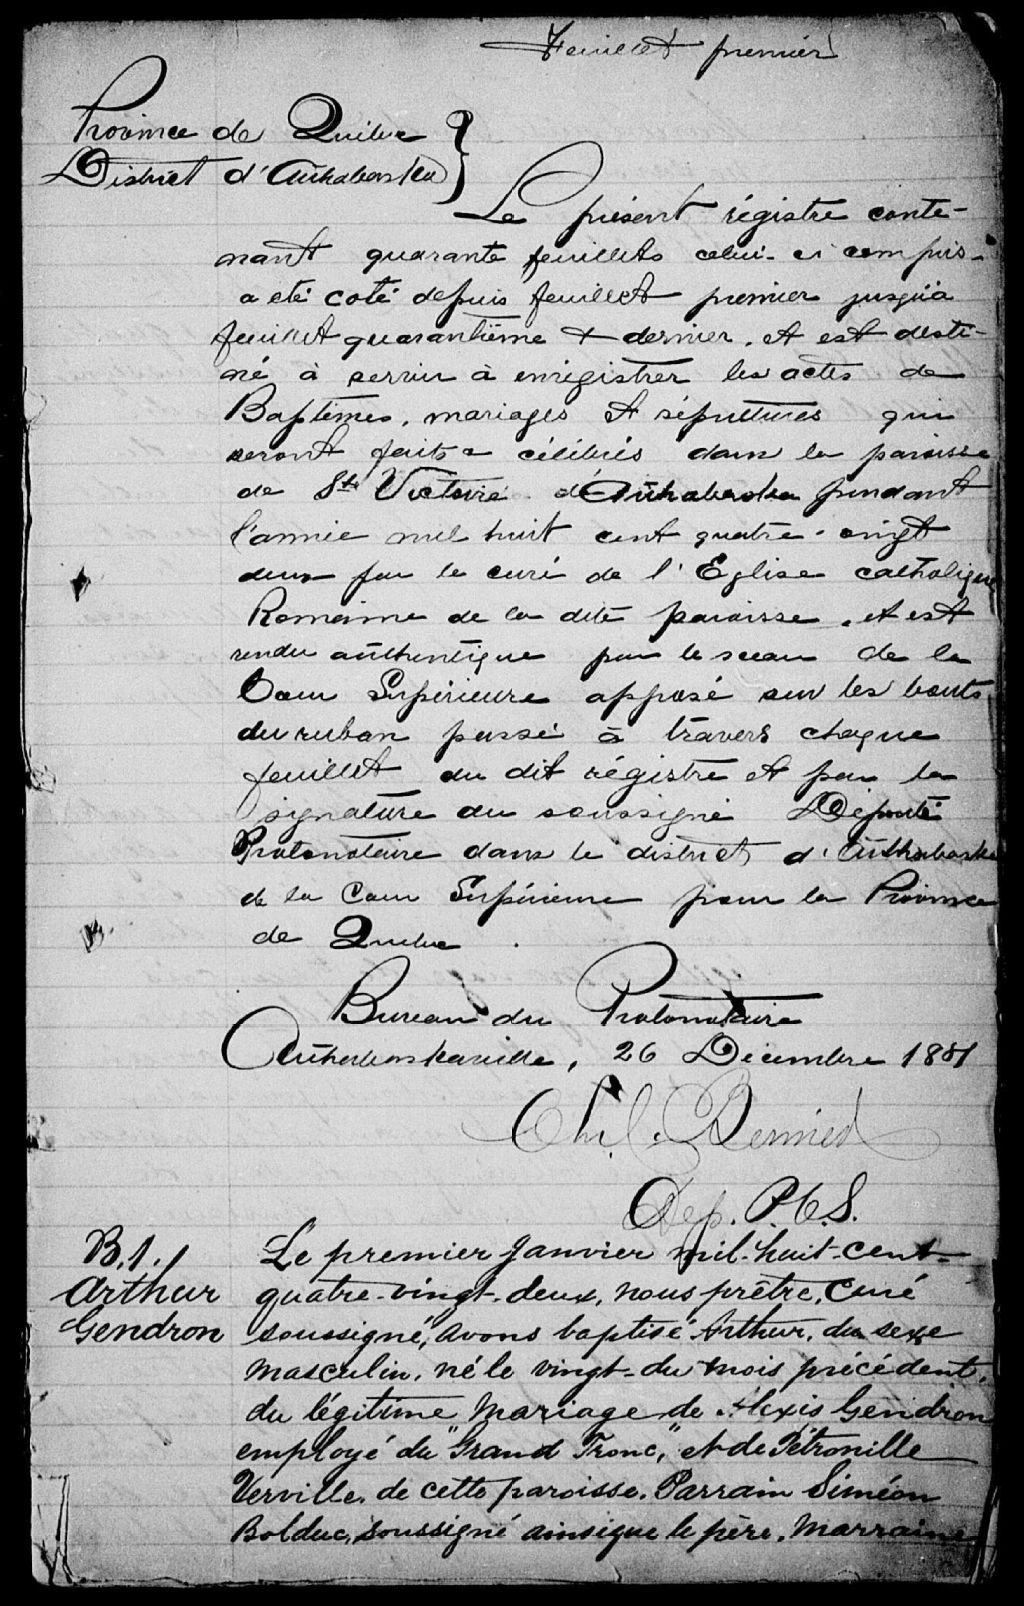 Feuillet premier
Province de Québec
District d'Arthabaska
Le présent régistre conte-
nant quarante feuillets celui-ci compris
a été coté depuis feuillet premier jusqu'à
feuillet quarantième & dernier, et est desti-
né à servir à enrégistrer les actes de
Baptêmes, mariages et sépultures qui
seront faits & célébrés dans la paroisse
de Ste Victoire d'Arthabaska pendant
l'année mil huit cent quatre-vingt
deux par le curé de l'Eglise catholique
Romaine de la dite paroisse, et est
rendu authentique par le sceau de la
Cour Supérieure apposé sur les bouts
du ruban passé à travers chaque
feuillet du dit régistre et par la
signature du soussigné Député
Protonotaire dans le district d'Arthabaska
de la Cour Supérieure pour la Province
de Québec
Bureau du Protonotaire
Arthabaskaville, 26 Décembre 1881
Dep. P.C.S.
B.1.
Arthur
Gendron
Le premier Janvier mil-huit-cent-
quatre-vingt-deux, nous prêtre, Curé
soussigné, avons baptisé Arthur, du sexe
masculin, né le vingt-du mois précédent,
du légitime mariage de Alexis Gendron
employé du "Grand Tronc", et de Pétronille
Verville, de cette paroisse. Parrain Siméon
Bolduc, soussigné ainsi que le père, Marraine